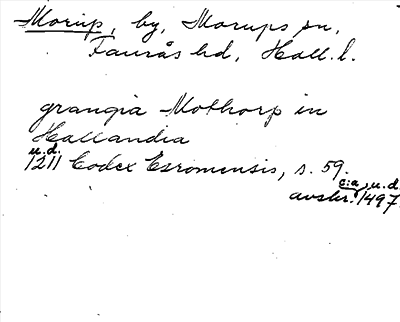 Morup, by, Morups sn,
Faurås hd, Hall. l.
grangia Mothorp in
Hallandia
u.d.
1211 Codex Esromensis, s. 59.
c:a, u.d.
avskr. 1497.